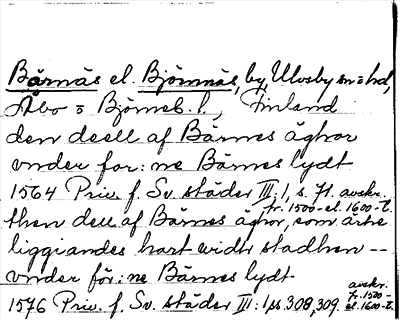 Bärnäs el. Björnnäs, by, Ulvsby sn o hd,
Åbo o Björneb. l., Finland
den deell af Bärnes äghor
vnder for:ne Bärnes lydt
1564 Priv. f. Sv. städer III:1, s. 71. avskr.
fr. 1500- el. 1600-t.
then dell af Bärnes äghor, som ärhe
liggiandes hart widh stadhen --
vnder för:ne Bärnes lydt
1576 Priv. f. Sv. städer III:1, s. 308, 309. avskr.
fr. 1500-
el. 1600-t.